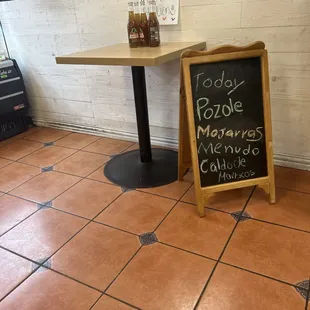 Today
Pozole
Mojarras
Menudo
Caldo de
Mariscos